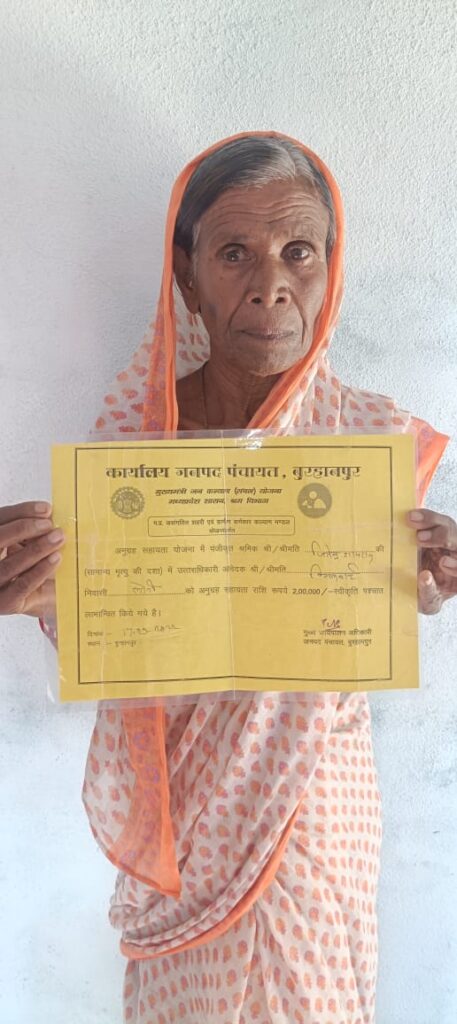 कार्यालय जनपद पंचायत, बुरहानपुर
मुख्यमंत्री जन कल्याण (संबल) योजना
मध्यप्रदेश शासन, श्रम विभाग
म.प्र. असंगठित शहरी एवं ग्रामीण कर्मकार कल्याण मण्डल
अनुग्रह सहायता योजना में पंजीकृत श्रमिक श्री/श्रीमति की
(सामान्य मृत्यु की दशा) में उत्तराधिकारी आवेदक श्री/श्रीमति
निवासी लोनी को अनुग्रह सहायता राशि रूपये 2,00,000/-स्वीकृति पश्चात
लाभान्वित किये गये है।
दिनांक :-
स्थान :- बुरहानपुर
मुख्य कार्यपालन अधिकारी
जनपद पंचायत, बुरहानपुर